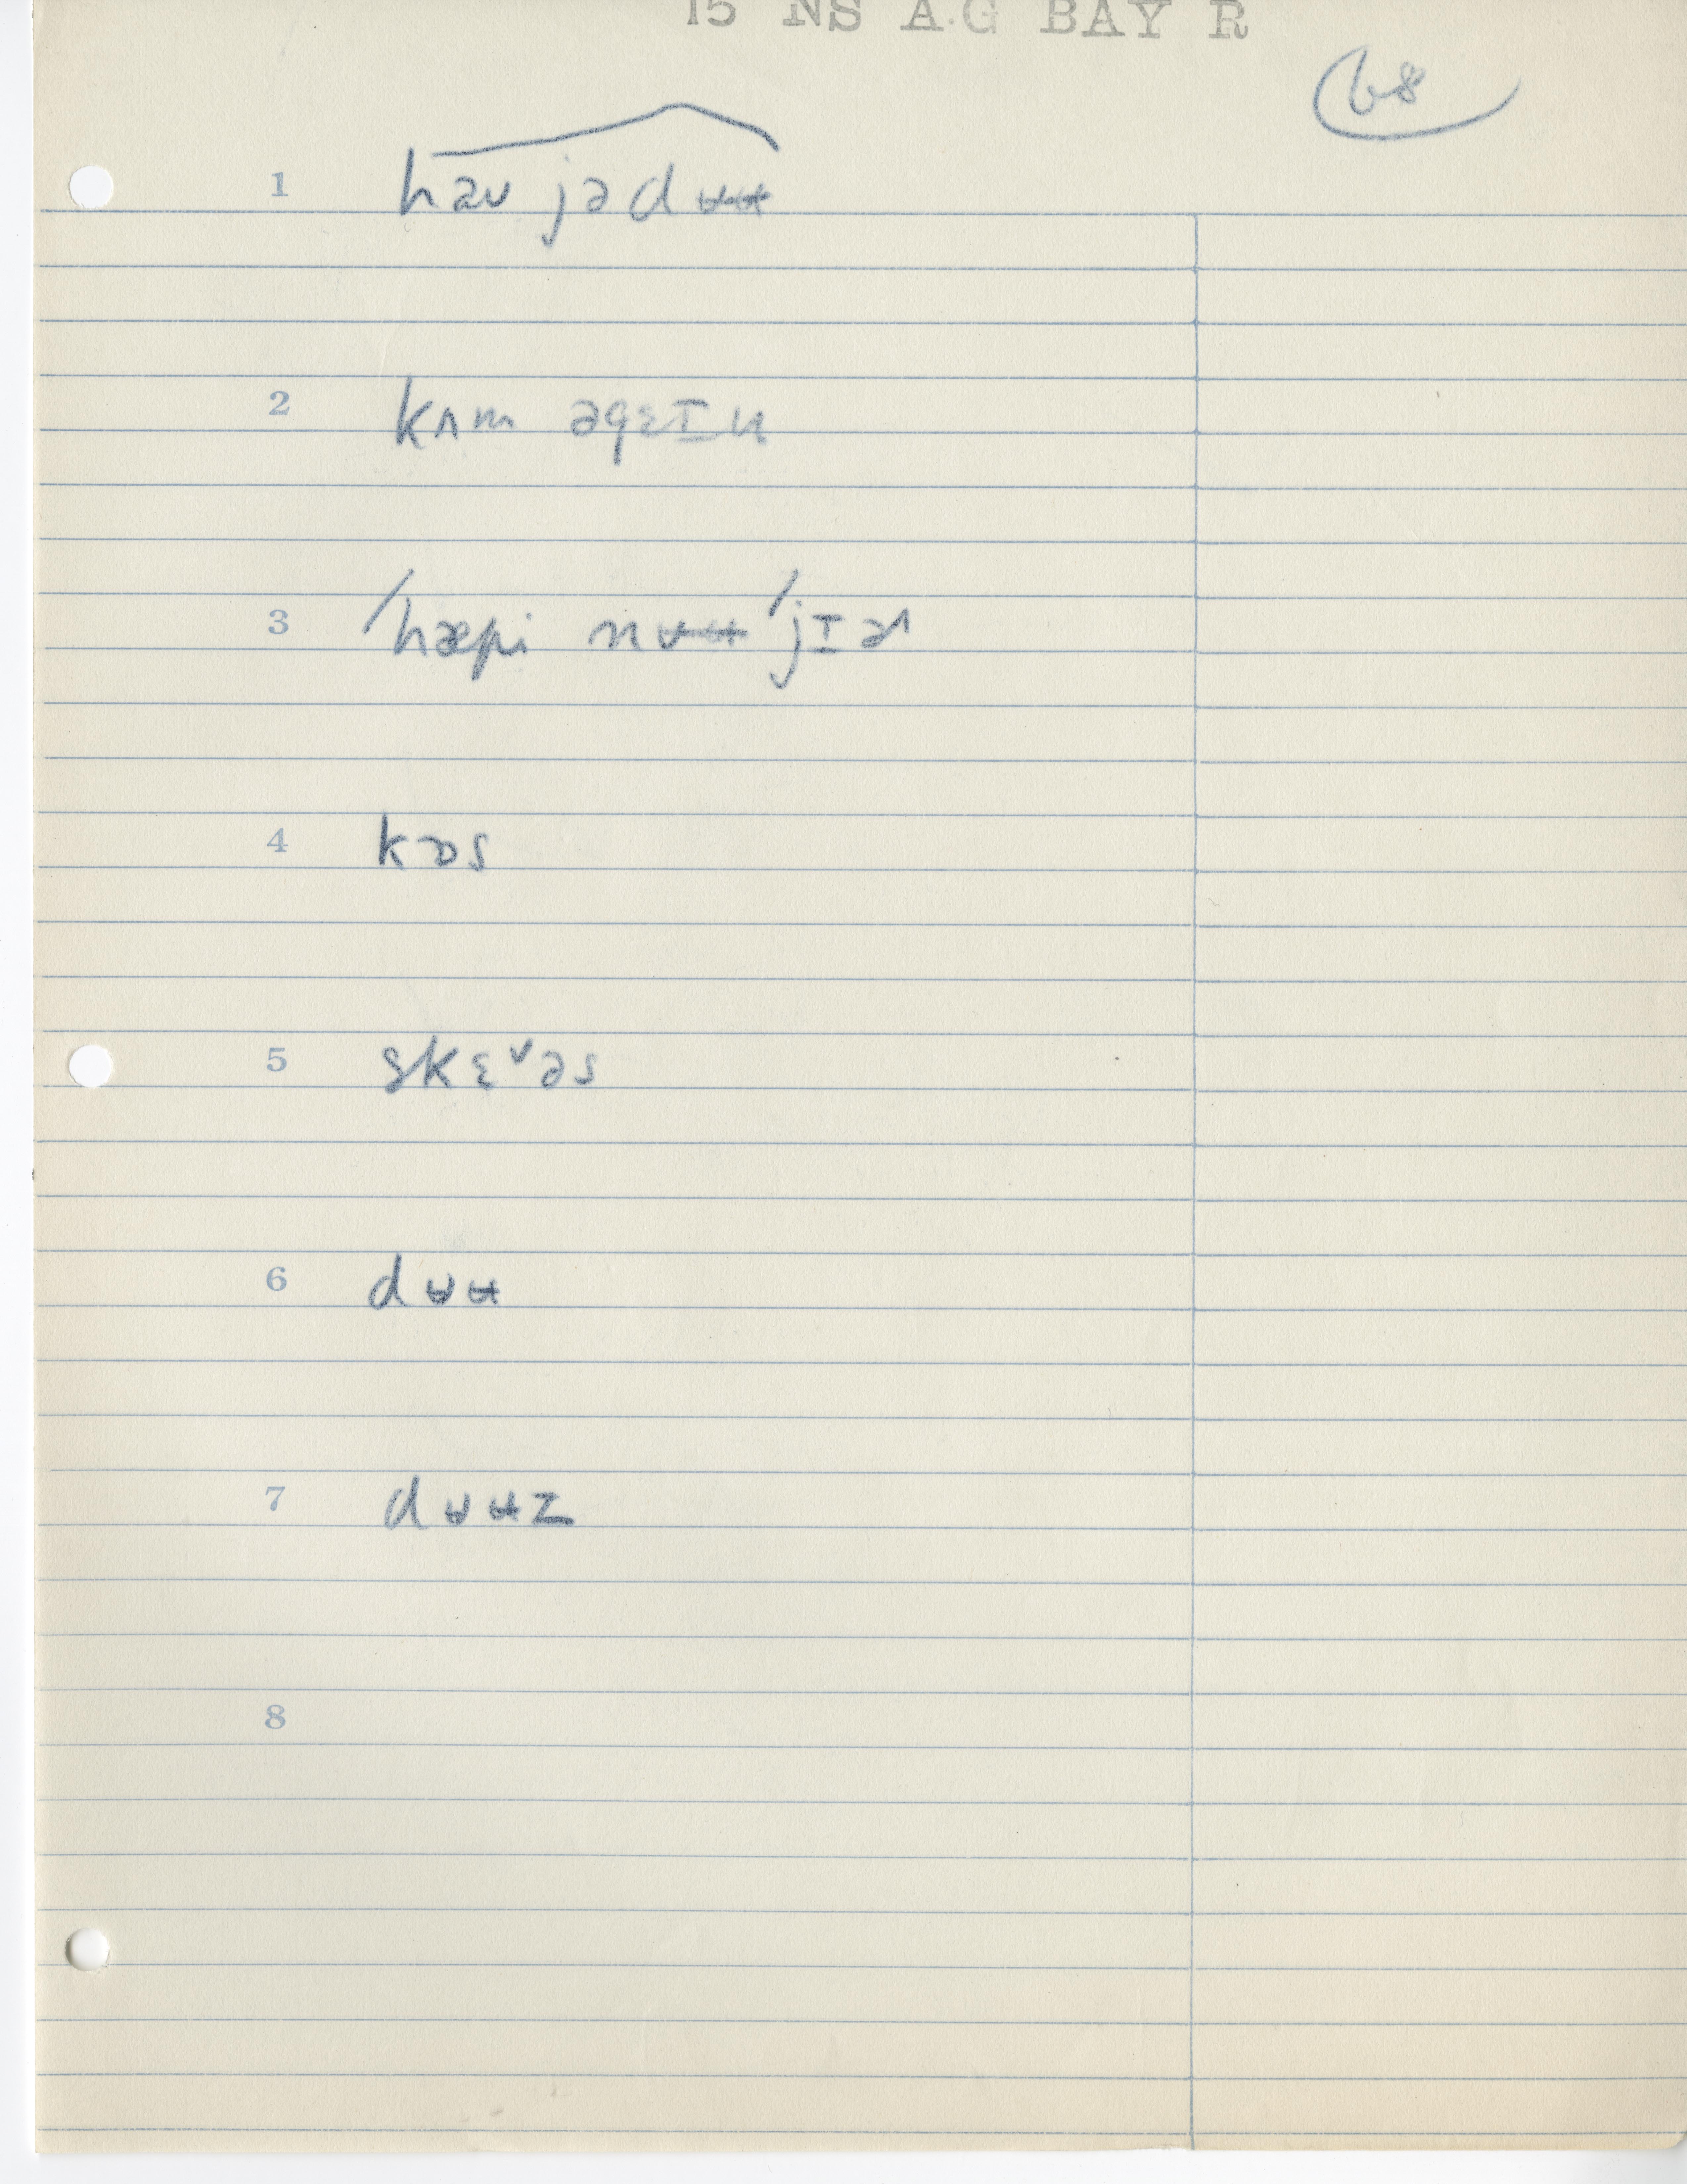 15 NS A·G BAY R
68
1 həʊ jə dʊ̵ʉ
2 kʌm əgɛɪn
3 ˈhæpi nʊ̵ʉ ˈjɪɚ
4 kɒs
5 skɛ˅əs
6 dʊ̵ʉ
7 dʊ̵ʉz
8